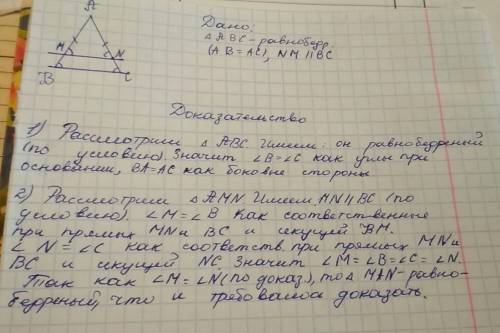 A
M
N
B
C
Дано:
△ABC - равнобедр.
(AB=AC), NM || BC
Доказательство
1) Рассмотрим △ABC. Имеем: он равнобедренный
(по условию). Значит ∠B=∠C как углы при
основании, BA=AC как боковые стороны
2) Рассмотрим △AMN. Имеем MN || BC (по
условию). ∠M=∠B как соответственные
при прямых MN и BC и секущей BM.
∠N=∠C как соответств. при прямых MN и
BC и секущей NC. Значит ∠M=∠B=∠C=∠N.
Так как ∠M=∠N (по доказ.), то △MAN-равно-
бедренный, что и требовалось доказать.